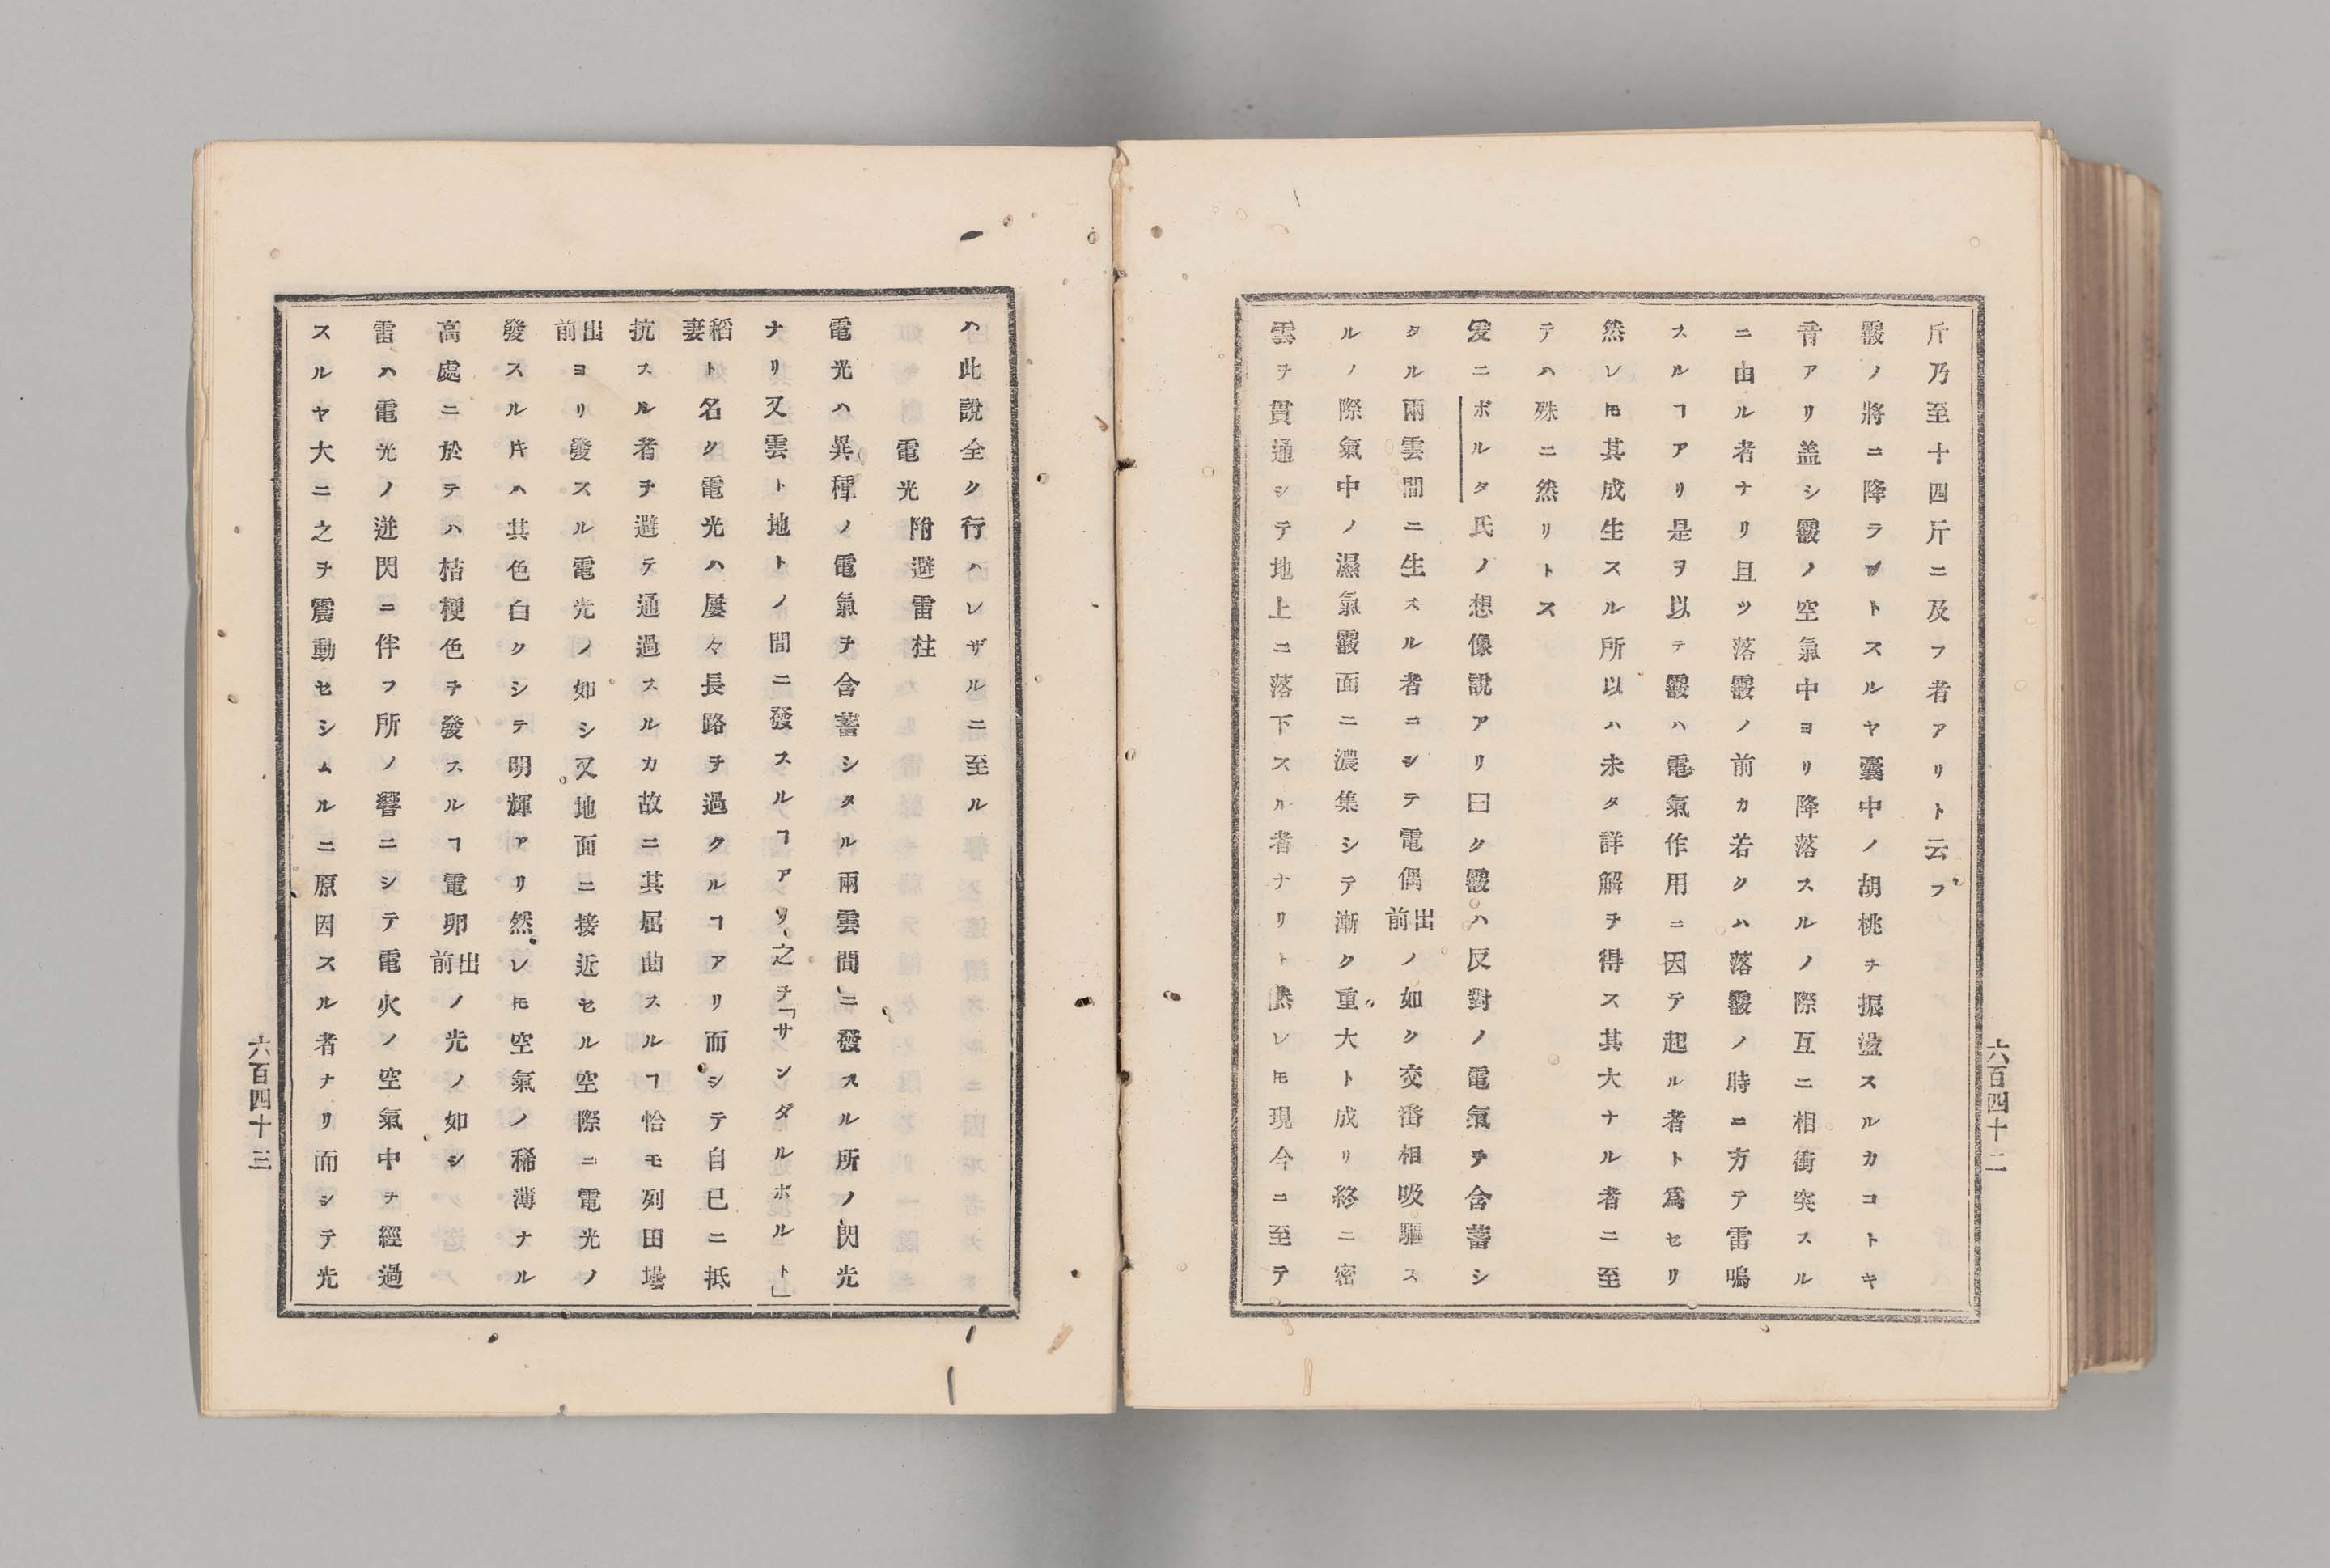 斤乃至十四斤ニ及フ者アリト云フ
霰ノ將ニ降ラントスルヤ囊中ノ胡桃ヲ振盪スルカコトキ
音アリ盖シ霰ノ空氣中ヨリ降落スルノ際互ニ相衝突スル
ニ由ル者ナリ且ツ落霰ノ前カ若クハ落霰ノ時ニ方テ雷鳴
スルヿアリ是ヲ以テ霰ハ電氣作用ニ因テ起ル者ト爲セリ
然レ𪜈其成生スル所以ハ未タ詳解ヲ得ス其大ナル者ニ至
テハ殊ニ然リトス
爰ニボルタ氏ノ想像說アリ曰ク霰ハ反對ノ電氣ヲ含蓄シ
タル兩雲間ニ生スル者ニシテ電偶前出ノ如ク交番相吸驅ス
ルノ際氣中ノ濕氣霰面ニ濃集シテ漸ク重大ト成リ終ニ密
雲ヲ貫通シテ地上ニ落下スル者ナリト然レ𪜈現今ニ至テ
六百四十二
ハ此說全ク行ハレザルニ至ル
電光附避雷柱
電光ハ異種ノ電氣ヲ含蓄シタル兩雲間ニ發スル所ノ閃光
ナリ又雲ト地トノ間ニ發スルヿアリ之ヲ「サンダルボルト」
稻妻ト名ク電光ハ屢々長路ヲ過クルヿアリ而シテ自己ニ抵
抗スル者ヲ避テ通過スルカ故ニ其屈曲スルヿ恰モ列田塲
前出ヨリ發スル電光ノ如シ又地面ニ接近セル空際ニ電光ノ
發スル片ハ其色白クシテ明輝アリ然レ𪜈空氣ノ稀薄ナル
高處ニ於テハ桔梗色ヲ發スルヿ電卵前出ノ光ノ如シ
雷ハ電光ノ迸閃ニ伴フ所ノ響ニシテ電火ノ空氣中ヲ經過
スルヤ大ニ之ヲ震動セシムルニ原因スル者ナリ而シテ光
六百四十三